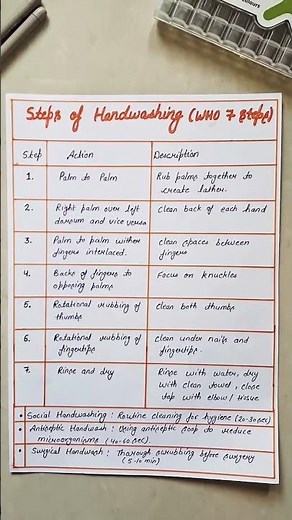 Steps of Handwashing (WHO 7 Steps)
Step Action Description
1. Palm to Palm Rub palms together to
create lather.
2. Right palm over left clean back of each hand
dorsum and vice versa
3. Palm to palm with clean spaces between
fingers interlaced. fingers
4. Backs of fingers to Focus on knuckles
opposing palms
5. Rotational rubbing of clean both thumbs
thumbs
6. Rotational rubbing of clean under nails and
fingertips fingertips.
7. Rinse and dry Rinse with water, dry
with clean towel, close
tap with elbow/tissue
• Social Handwashing : Routine cleaning for hygiene (20-30sec)
• Antiseptic Handwash : Using antiseptic soap to reduce
microorganisms (40-60 sec).
• Surgical Handwash : Thorough scrubbing before surgery
(5-10 min)